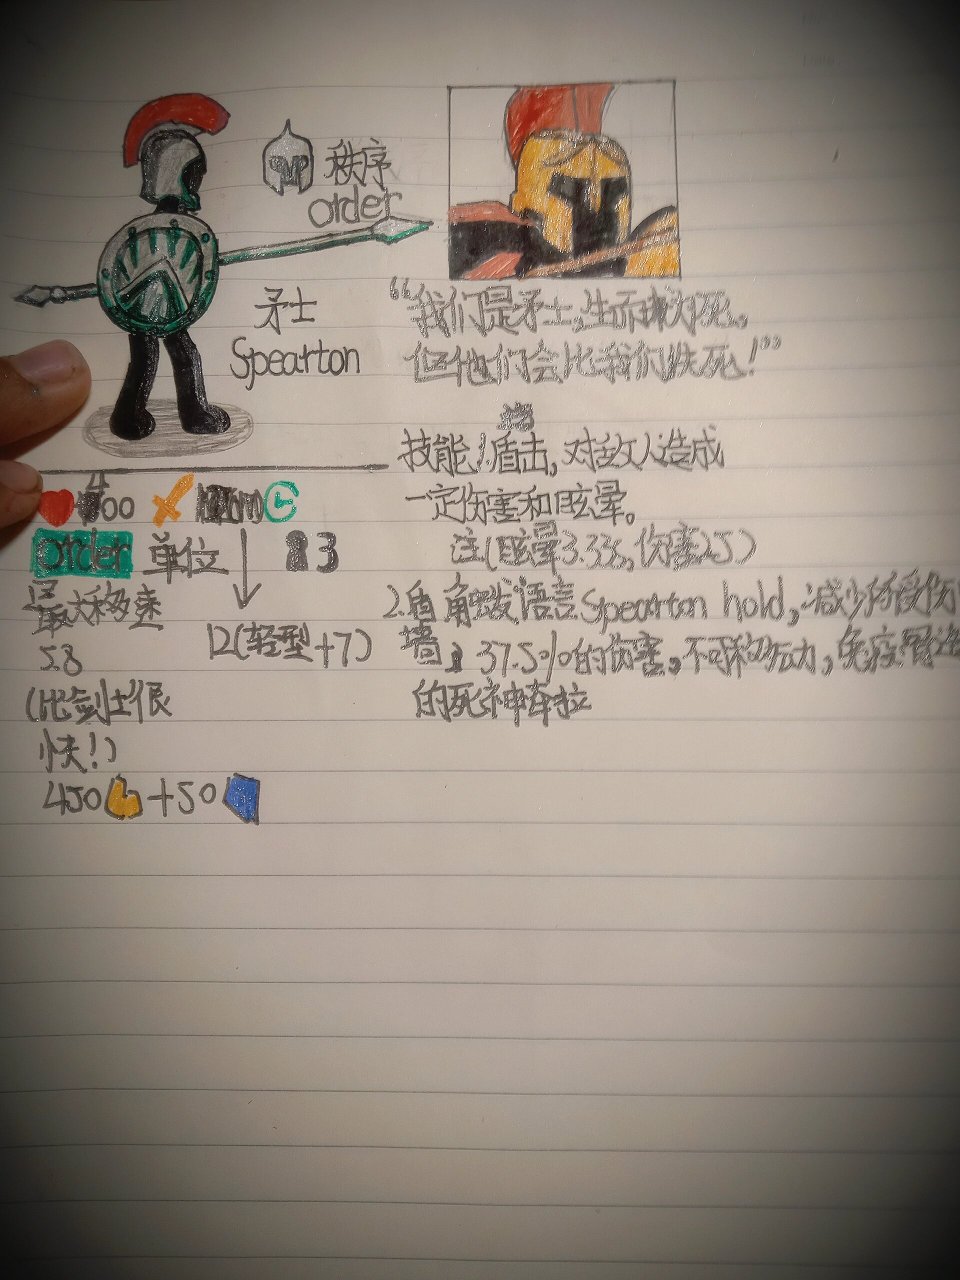 秩序
order
矛士
Spearton
“我们是矛士,生而为死,
但他们会比我们先死!”
技能1.盾击,对敌人造成
一定伤害和眩晕。
注(眩晕3.33s,伤害25)
2.盾墙 触发语言Spearton hold,减少所受伤
37.5%的伤害。不可移动,免疫
的死神牵拉
400
order 单位 3
最大移速
5.8
12(轻型+7)
(比剑士很
快!)
450 +50